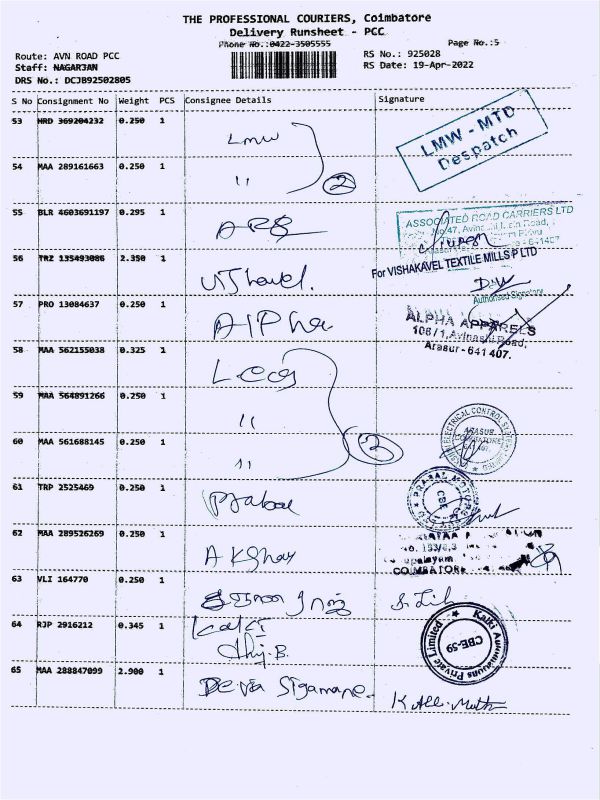 THE PROFESSIONAL COURIERS, Coimbatore
Delivery Runsheet - PCC
Phone No.:0422-3505555 Page No.:5
Route: AVN ROAD PCC RS No.: 925028
Staff: NAGARJAN RS Date: 19-Apr-2022
DRS No.: DCJB92502805
S No Consignment No Weight PCS Consignee Details Signature
53 NRD 369204232 0.250 1 Lmw
LMW - MTD
Despatch
54 MAA 289161663 0.250 1 ״
2
55 BLR 4603691197 0.295 1 ARC
ASSOCIATED ROAD CARRIERS LTD
56 TRZ 135493086 2.350 1
For VISHAKAVEL TEXTILE MILLS P LTD
Authorised Signatory
57 PRO 13084637 0.250 1 AlPha
ALPHA APPARELS
106/1, Avinashi Road,
Arasur - 641 407.
58 MAA 562155038 0.325 1
59 MAA 564891266 0.250 1 ״
60 MAA 561688145 0.250 1 ״
3
ELECTRICAL CONTROL
ARASUR
COIMBATORE
641 407
61 TRP 2525469 0.250 1 Prabal
PRABAL MOTORS
CBE
62 MAA 289526269 0.250 1 AKShay
COIMBATORE
63 VLI 164770 0.250 1
64 RJP 2916212 0.345 1 kalki
Kalki Automations Private Limited
CBE-59
65 MAA 288847099 2.900 1 Deva Sigamane